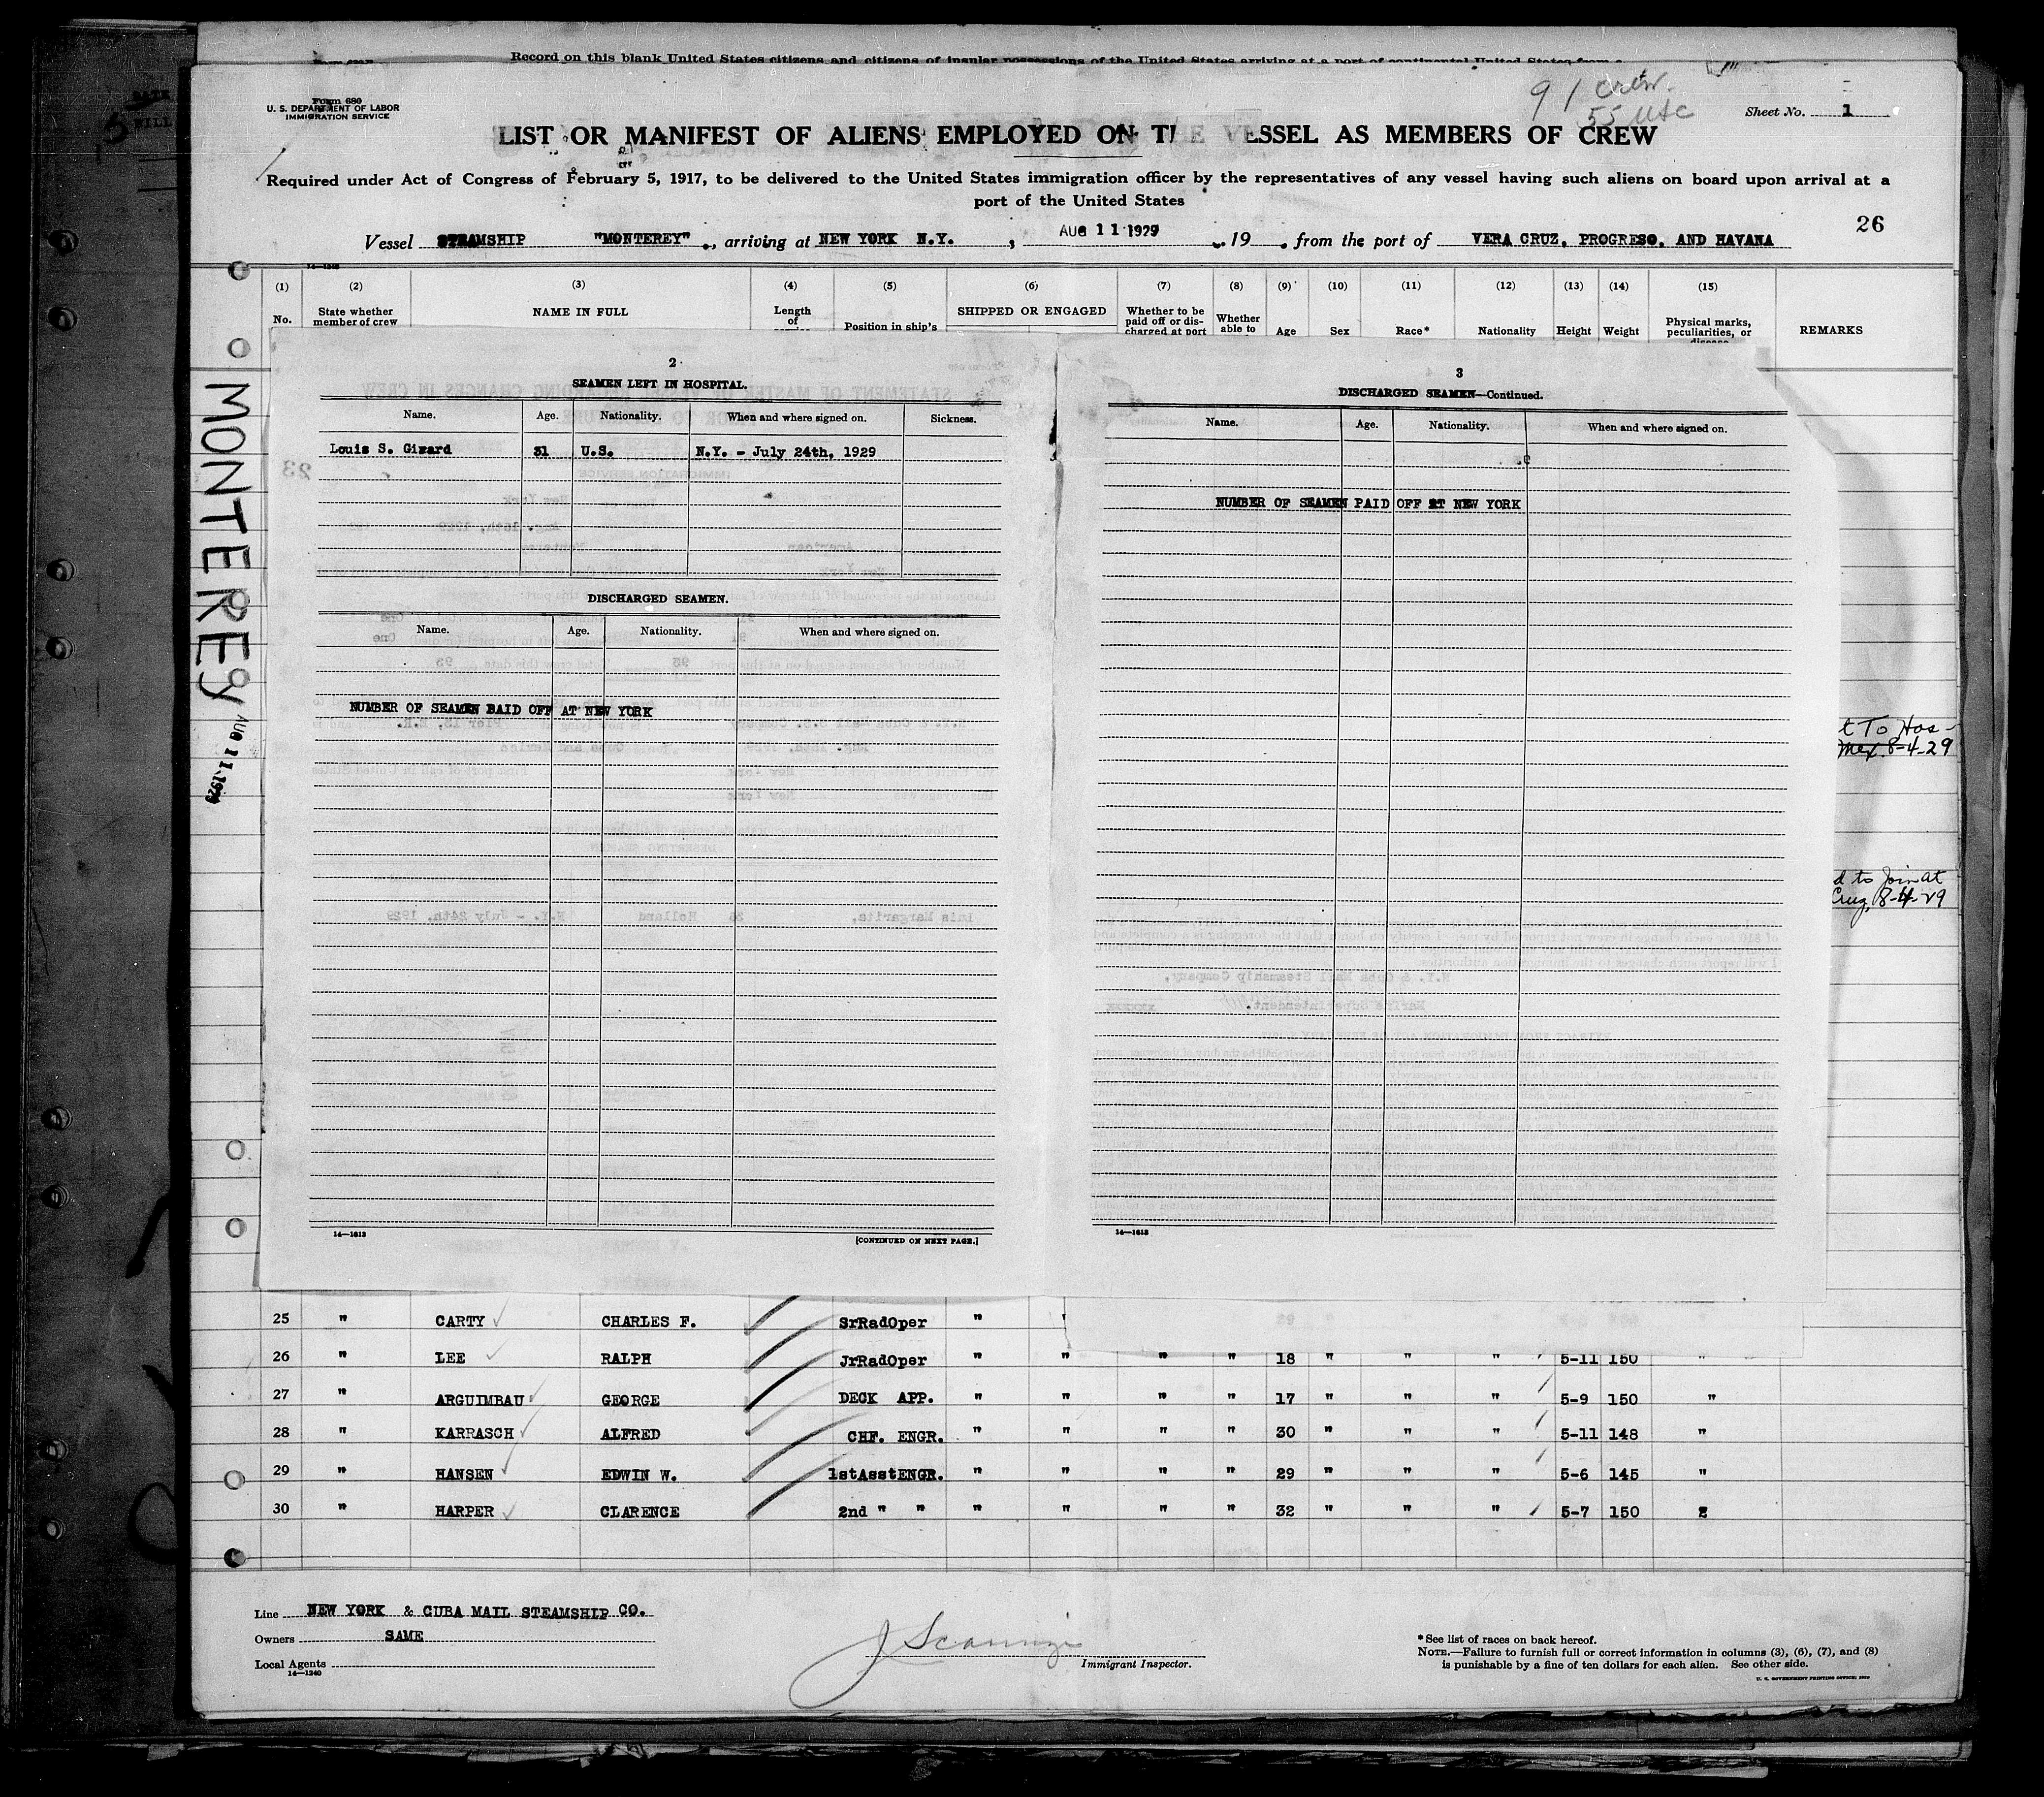 Record on this blank United States citizens and citizens of insular possessions of the United States arriving at a port of continental United States from a
Form 680
U. S. DEPARTMENT OF LABOR
IMMIGRATION SERVICE
91 crew.
55 USC
Sheet No. 1
LIST OR MANIFEST OF ALIENS EMPLOYED ON THE VESSEL AS MEMBERS OF CREW
Required under Act of Congress of February 5, 1917, to be delivered to the United States immigration officer by the representatives of any vessel having such aliens on board upon arrival at a
port of the United States
26
Vessel STEAMSHIP "MONTEREY", arriving at NEW YORK N.Y., AUG 11 1929, 19 , from the port of VERA CRUZ, PROGRESO, AND HAVANA
14—1240
(1) (2) (3) (4) (5) (6) (7) (8) (9) (10) (11) (12) (13) (14) (15)
No. State whether member of crew NAME IN FULL Length of Position in ship's SHIPPED OR ENGAGED Whether to be paid off or discharged at port Whether able to Age Sex Race* Nationality Height Weight Physical marks, peculiarities, or disease REMARKS
MONTEREY
AUG 11 1929
2
SEAMEN LEFT IN HOSPITAL.
Name. Age. Nationality. When and where signed on. Sickness.
Louis S. Girard 31 U.S. N.Y. - July 24th, 1929
DISCHARGED SEAMEN.
Name. Age. Nationality. When and where signed on.
NUMBER OF SEAMEN PAID OFF AT NEW YORK
14—1613
[CONTINUED ON NEXT PAGE.]
3
DISCHARGED SEAMEN—Continued.
Name. Age. Nationality. When and where signed on.
NUMBER OF SEAMEN PAID OFF AT NEW YORK
14—1613
t To Hos-
Mex. 8-4-29
d to Join at
Cruz, 8-4-29
25 " CARTY CHARLES F. SrRadOper "
26 " LEE RALPH JrRadOper " " " " 18 " " " 5-11 150 "
27 " ARGUIMBAU GEORGE DECK APP. " " " " 17 " " " 5-9 150 "
28 " KARRASCH ALFRED CHF. ENGR. " " " " 30 " " " 5-11 148 "
29 " HANSEN EDWIN W. 1stAsstENGR. " " " " 29 " " " 5-6 145 "
30 " HARPER CLARENCE 2nd " " " " " " 32 " " " 5-7 150 "
Line NEW YORK & CUBA MAIL STEAMSHIP CO.
Owners SAME
Local Agents
14—1240
Immigrant Inspector.
* See list of races on back hereof.
NOTE.—Failure to furnish full or correct information in columns (3), (6), (7), and (8)
is punishable by a fine of ten dollars for each alien. See other side.
U. S. GOVERNMENT PRINTING OFFICE: